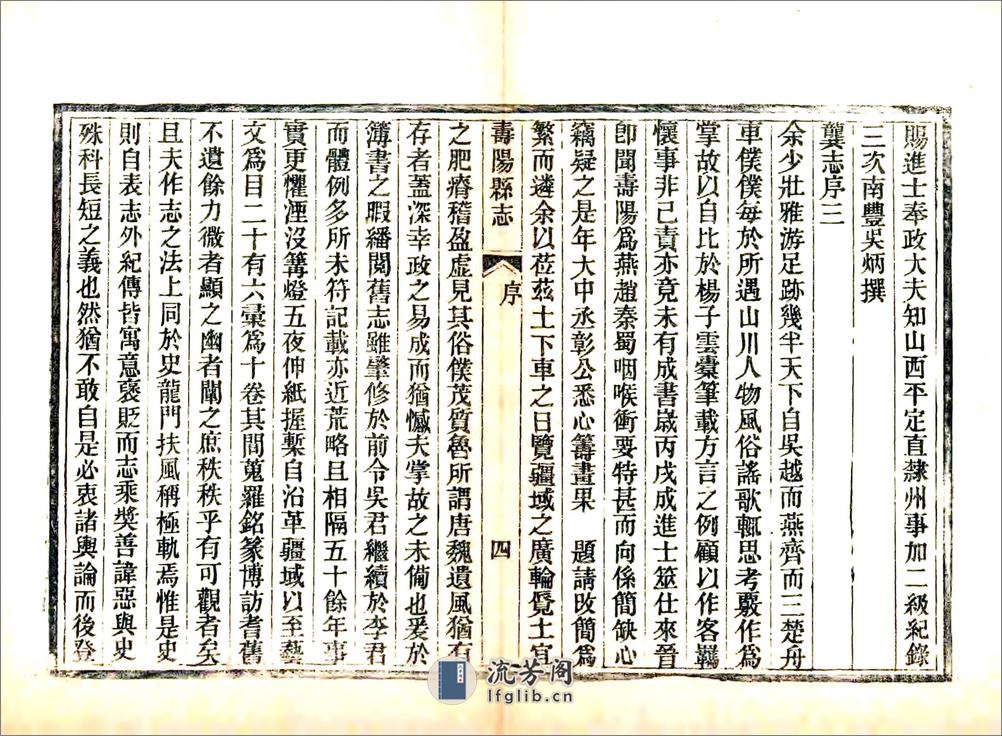 賜進士奉政大夫知山西平定直隸州事加二級紀錄
三次南豐吳炳撰
龔志序三
余少壯雅游足跡幾半天下自吳越而燕齊而三楚舟
車僕僕每於所遇山川人物風俗謠歌輒思考覈作為
掌故以自比於楊子雲槖筆載方言之例顧以作客羈
懷事非己責亦竟未有成書歲丙戌成進士筮仕來晉
卽聞壽陽爲燕趙秦蜀咽喉衝要特甚而向係簡缺心
竊疑之是年大中丞彰公悉心籌畫果 題請改簡爲
繁而遴余以莅茲土下車之日覽疆域之廣輪覽土宜
壽陽縣志 序 四
之肥瘠稽盈虛見其俗僕茂質魯所謂唐魏遺風猶有
存者蓋深幸政之易成而猶憾夫掌故之未備也爰於
簿書之暇繙閱舊志雖肇修於前令吳君繼續於李君
而體例多所未符記載亦近荒略且相隔五十餘年事
實更懼湮沒篝燈五夜伸紙握槧自沿革疆域以至藝
文爲目二十有六彙爲十卷其間蒐羅銘篆博訪耆舊
不遺餘力微者顯之幽者闡之庶秩秩乎有可觀者矣
且夫作志之法上同於史龍門扶風稱極軌焉惟是史
則自表志外紀傳皆寓意褒貶而志乘奬善諱惡與史
殊科長短之義也然猶不敢自是必衷諸輿論而後登
流芳阁
lfglib.cn